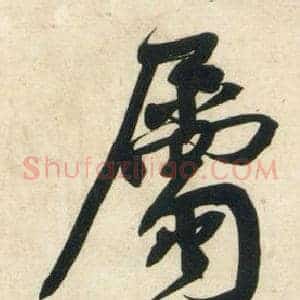 屬
ShufaZiliao.COM